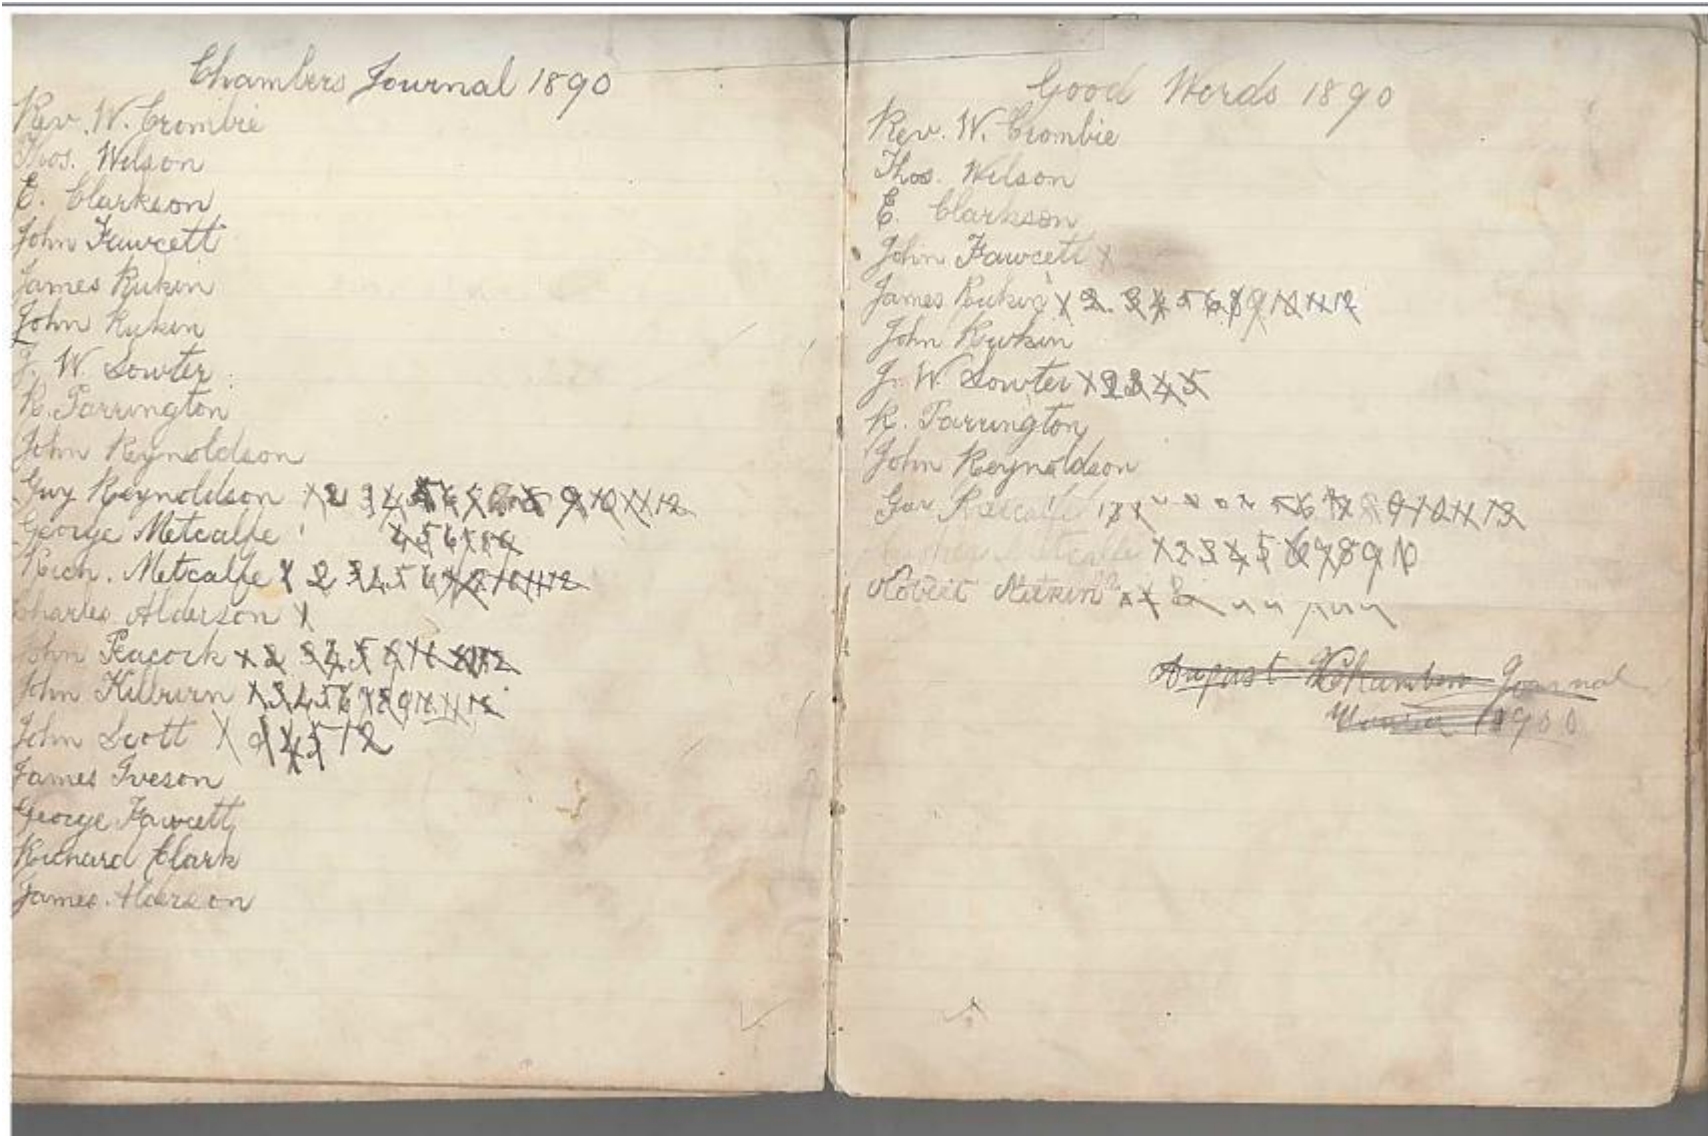 Chambers Journal 1890
Rev. W. Crombie
Thos. Wilson
E. Clarkson
John Fawcett
James Rukin
John Rukin
J. W. Sowter
R. Parrington
John Reynoldson
Guy Reynoldson X 2 3 4 5 6 9 10 11 12
George Metcalfe 4 5 6 7 8 9
Rich. Metcalfe X 2 3 4 5 6
Charles Alderson X
John Peacock X 2 3 4 5
John Kilburn X 3 4 5 6 7 8 9 10 11 12
John Scott X 4 5 12
James Iveson
George Fawcett
Richard Clark
James Alderson
Good Words 1890
Rev. W. Crombie
Thos. Wilson
E. Clarkson
John Fawcett X
James Rukin X 2 3 4 5 6 8 9 10 11 12
John Rukin
J. W. Sowter X 2 3 4 5
R. Parrington
John Reynoldson
Metcalfe 5 6 7 8 9 10 11 12
Metcalfe X 2 3 4 5 6 7 8 9 10
Robert
August Chambers Journal
1900